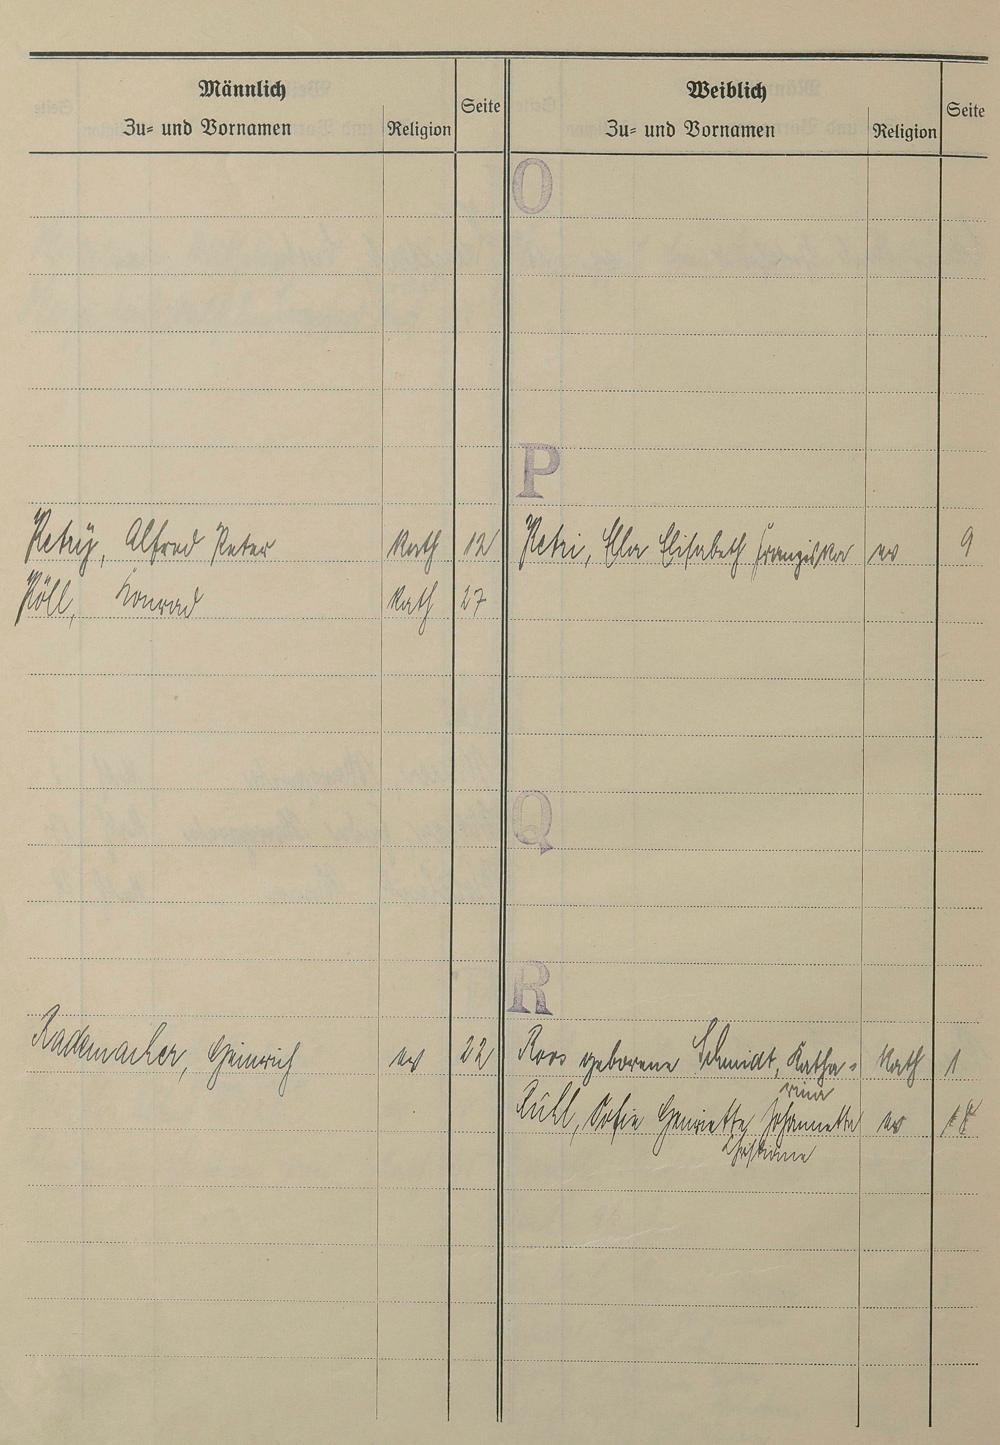 Männlich
Zu= und Vornamen
Religion
Seite
Weiblich
Zu= und Vornamen
Religion
Seite
O
P
Petrÿ, Alfred Peter Kath 12
Petri, Ella Elisabeth Franziska ev 9
Pöll, Konrad Kath 27
Q
R
Rademacher, Heinrich ev 22
Roos geborene Schmidt, Katha= Kath 1
rina
Rühl, Sofie Henriette Johannetta ev 18
Christiane